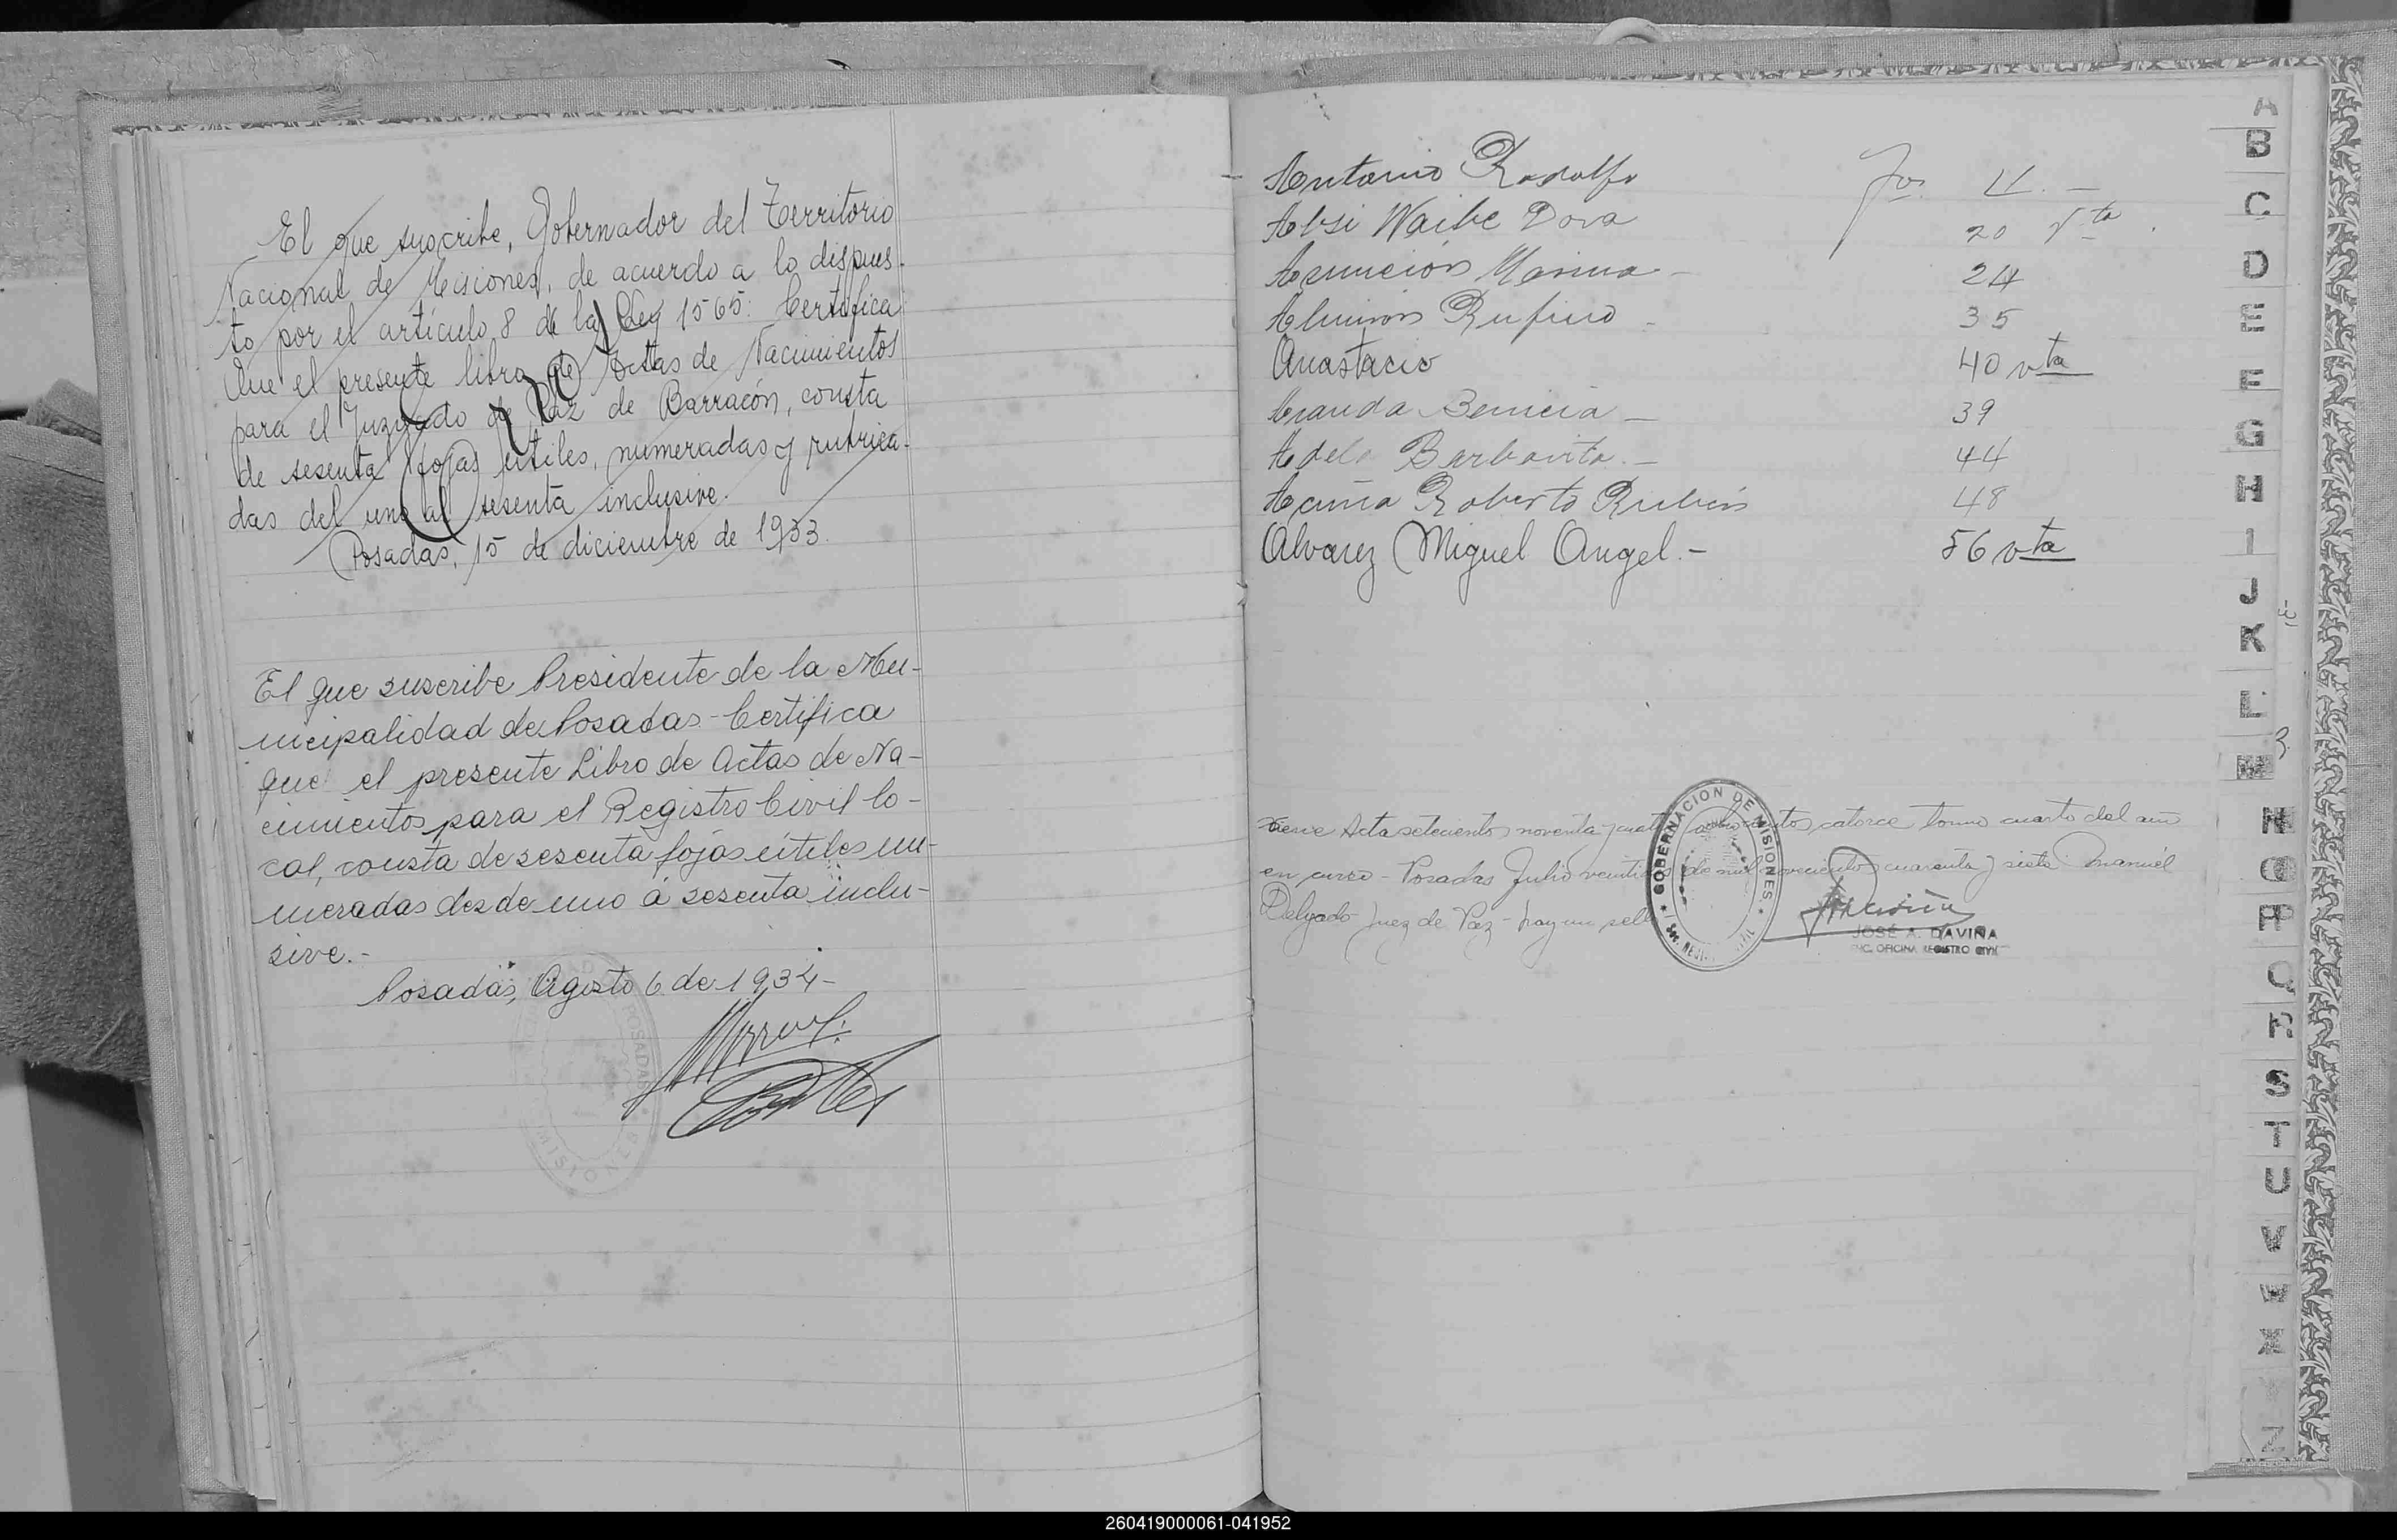 El que suscribe, Gobernador del Territorio
Nacional de Misiones, de acuerdo a lo dispues-
to por el artículo 8 de la Ley 1565: Certifica
Que el presente libro de Actas de Nacimientos
para el Juzgado de Paz de Barracón, consta
de sesenta fojas útiles, numeradas y rubrica-
das del uno al sesenta inclusive.
Posadas, 15 de diciembre de 1933.
El que suscribe Presidente de la Mu-
nicipalidad de Posadas - Certifica
que el presente Libro de Actas de Na-
cimientos para el Registro Civil lo-
cal, consta de sesenta fojas útiles nu-
meradas desde uno á sesenta inclu-
sive.-
Posadas, Agosto 6 de 1934-
POSADAS
MISIONES
Antonio Rodolfo Fos. 11. -
Absi Waibe Dora 20 vta.
Asunción Marina - 24
Rufino - 35
Anastacio 40 vta
Aranda Benicia - 39
Adela Barbarita. - 44
Acuña Roberto Rubén 48
Alvarez Miguel Angel. - 56 vta
Acta setecientos noventa y catorce tomo cuarto del año
en curso - Posadas Julio de mil novecientos cuarenta y siete Manuel
Delgado - Juez de Paz - hay un sello
GOBERNACION DE MISIONES
JOSÉ A. DAVIÑA
ENC. OFICINA REGISTRO CIVIL
A
B
C
D
E
F
G
H
I
J
K
L
M
N
O
P
Q
R
S
T
U
V
W
X
Z
260419000061-041952